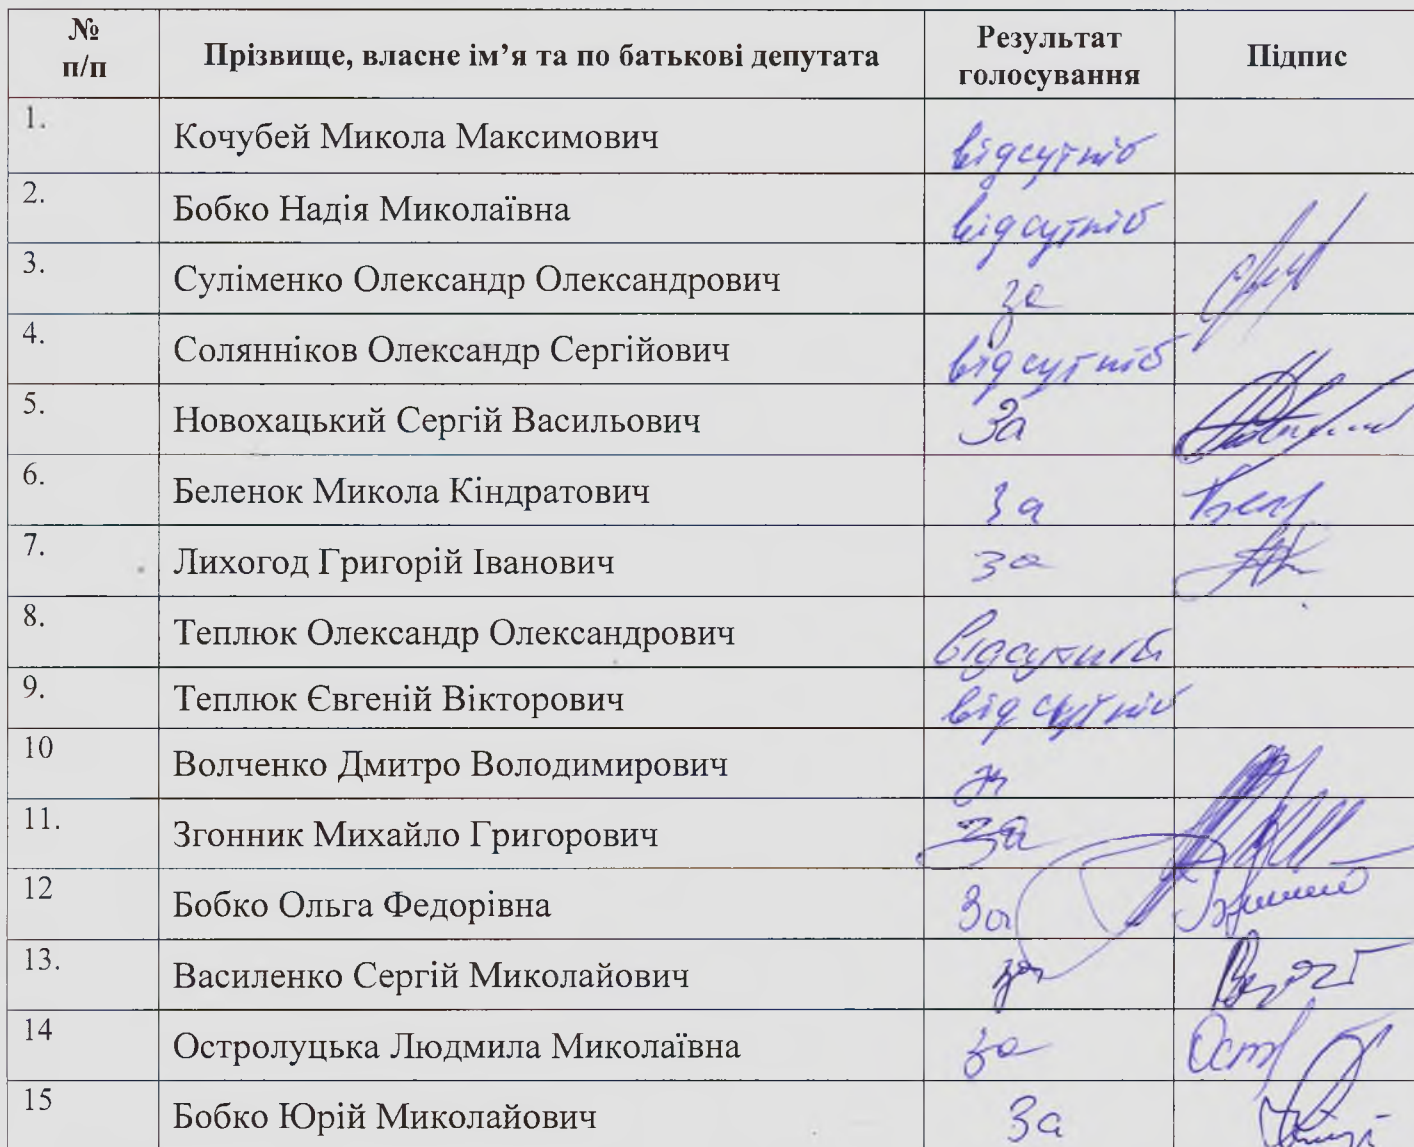 № п/п Прізвище, власне ім’я та по батькові депутата Результат голосування Підпис
1. Кочубей Микола Максимович відсутній
2. Бобко Надія Миколаївна відсутній
3. Суліменко Олександр Олександрович за
4. Солянніков Олександр Сергійович відсутній
5. Новохацький Сергій Васильович За
6. Беленок Микола Кіндратович за
7. Лихогод Григорій Іванович за
8. Теплюк Олександр Олександрович відсутній
9. Теплюк Євгеній Вікторович відсутній
10 Волченко Дмитро Володимирович за
11. Згонник Михайло Григорович За
12 Бобко Ольга Федорівна За
13. Василенко Сергій Миколайович за
14 Остролуцька Людмила Миколаївна за
15 Бобко Юрій Миколайович За